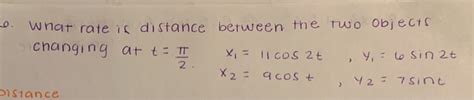 o. What rate is distance between the two objects
changing at t = π/2. x₁ = 11 cos 2t , y₁ = 6 sin 2t
x₂ = 9 cos t , y₂ = 7 sin t
Distance